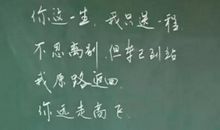 你这一生，我只送一程.
不忍离别，但车已到站
我原路返回
你远走高飞.